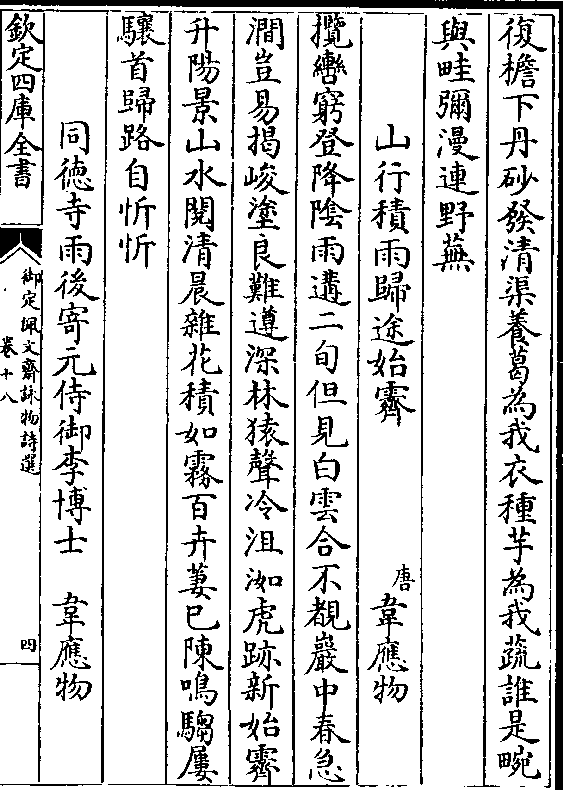 復檐下丹砂發清渠養葛為我衣種芋為我蔬誰是畹
與畦彌漫連野蕪
山行積雨歸途始霽 唐韋應物
攬轡窮登降陰雨遘二旬但見白雲合不覩巖中春急
澗豈易揭峻塗良難遵深林猿聲冷沮洳虎跡新始霽
升陽景山水閱清晨雜花積如霧百卉萋已陳鳴騶屢
驤首歸路自忻忻
同徳寺雨後寄元侍御李博士 韋應物
欽定四庫全書
御定佩文齋詠物詩選
卷十八
四